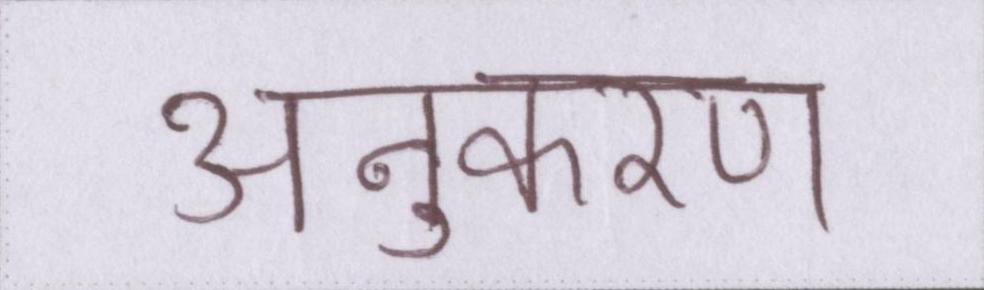 अनुकरण